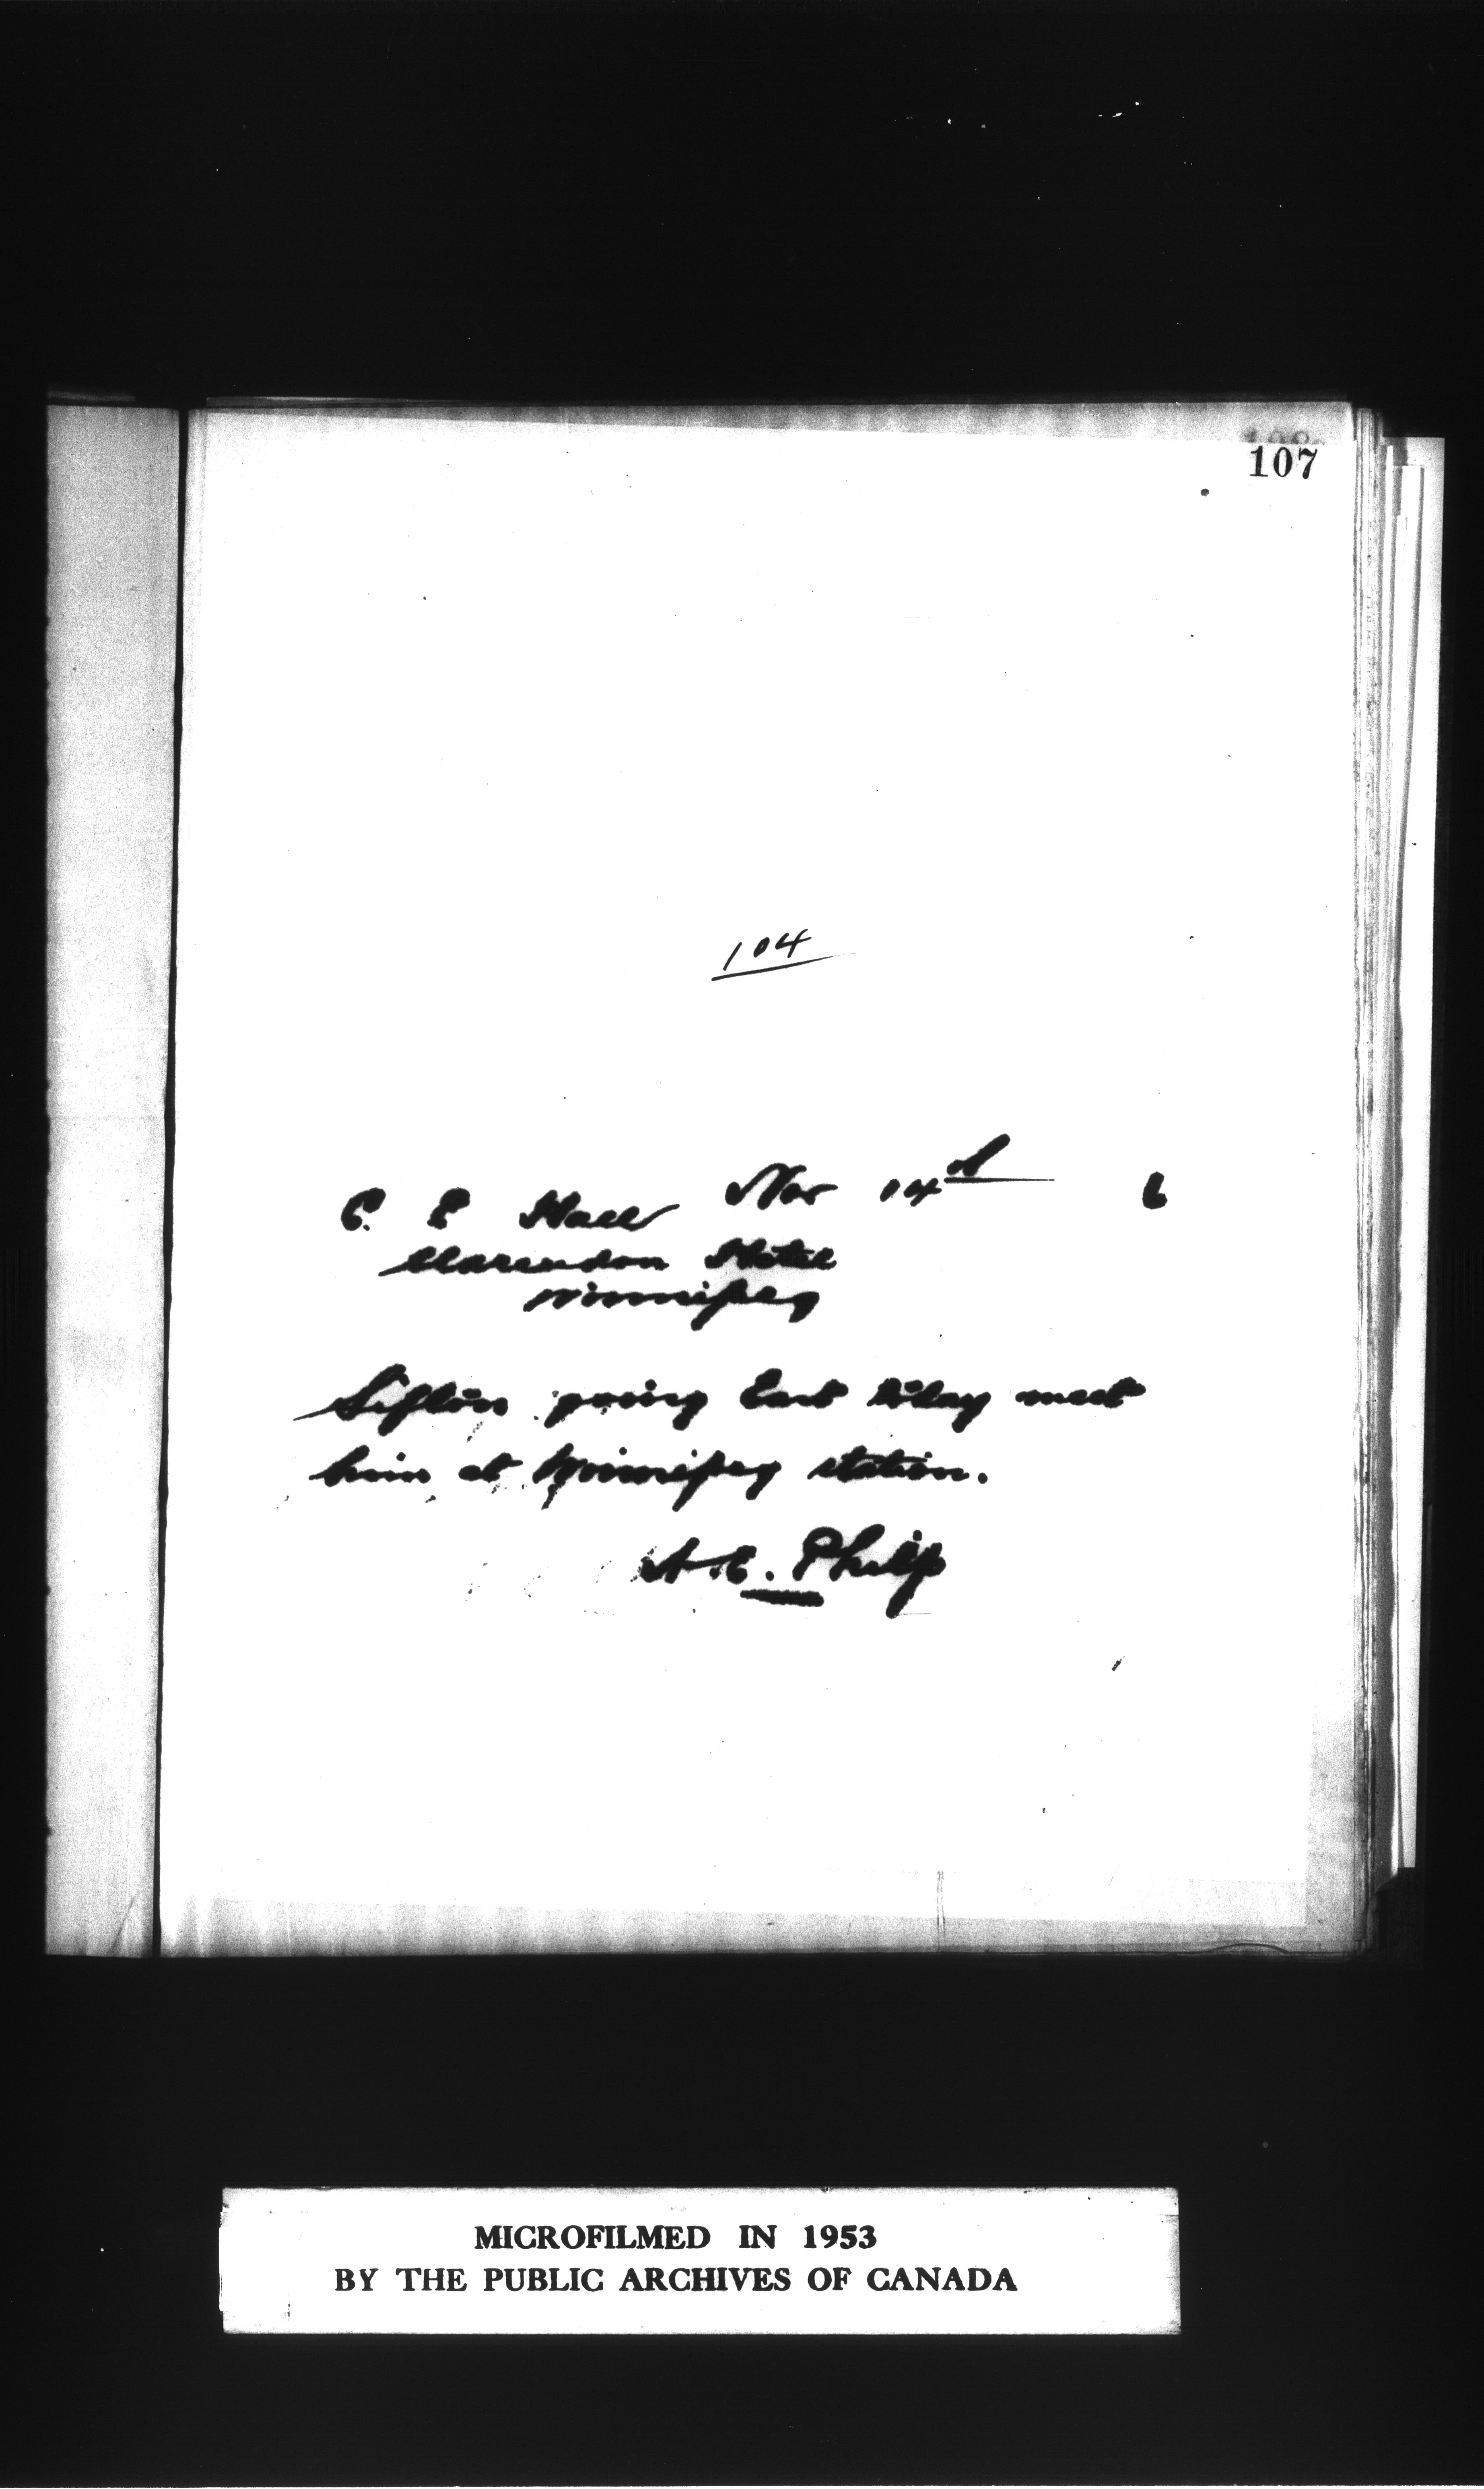 107
104
Nov 14th 6
C. E. Hall
Clarendon Hotel
Winnipeg
Sifton going East today meet
him at Winnipeg station.
A. C. Philp
MICROFILMED IN 1953
BY THE PUBLIC ARCHIVES OF CANADA